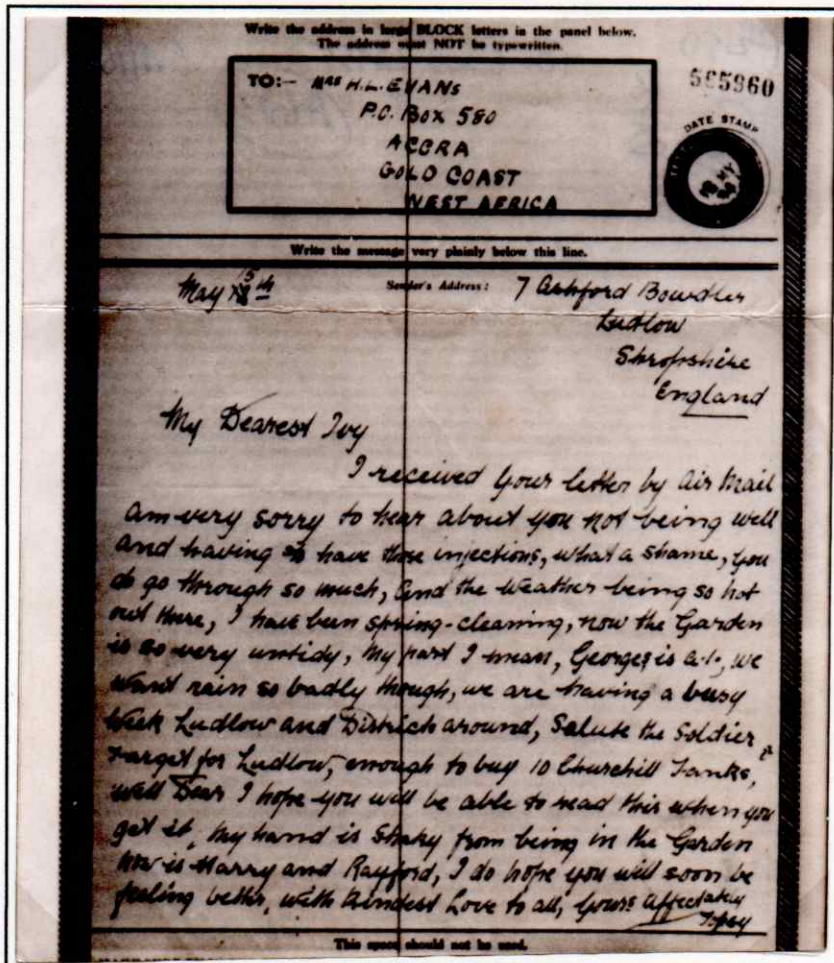 Write the address in large BLOCK letters in the panel below.
The address must NOT be typewritten.
TO:- MRS H.L. EVANS
P.O. BOX 580
ACCRA
GOLD COAST
WEST AFRICA
565960
DATE STAMP
Write the message very plainly below this line.
May 15th
Sender's Address: 7 Ashford Bowdler
Ludlow
Shropshire
England
My Dearest Ivy
I received your letter by Air Mail
am very sorry to hear about you not being well
and having to have those injections, what a shame, you
do go through so much, and the weather being so hot
out there, I have been spring-cleaning, now the Garden
is so very untidy, my part I mean, Georges is a.1., we
want rain so badly though, we are having a busy
week Ludlow and District around, Salute the Soldier,
Target for Ludlow, enough to buy 10 Churchill Tanks,
well Dear I hope you will be able to read this when you
get it, my hand is shaky from being in the Garden
how is Harry and Rayford, I do hope you will soon be
feeling better, with kindest Love to all, yours affectately
This space should not be used.